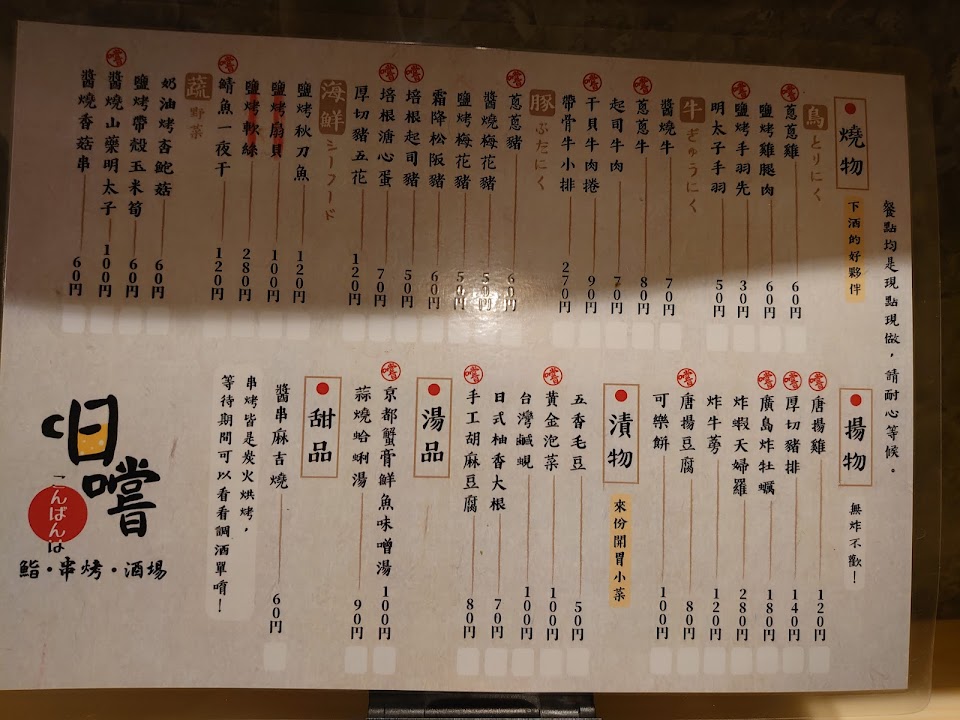 餐點均是現點現做，請耐心等候。
燒物
下酒的好夥伴
鳥 とりにく
嚐 蔥蔥雞 60円
鹽烤雞腿肉 60円
嚐 鹽烤手羽先 30円
明太子手羽 50円
牛 ぎゅうにく
醬燒牛 70円
嚐 蔥蔥牛 80円
起司牛肉 70円
嚐 干貝牛肉捲 90円
帶骨牛小排 270円
豚 ぶたにく
嚐 蔥蔥豬 60円
醬燒梅花豬 50円
鹽烤梅花豬 50円
霜降松阪豬 60円
嚐 培根起司豬 50円
嚐 培根溏心蛋 70円
厚切豬五花 120円
海鮮 シーフード
鹽烤秋刀魚 120円
鹽烤扇貝 100円
鹽烤軟絲 280円
嚐 鯖魚一夜干 120円
蔬 野菜
奶油烤杏鮑菇 60円
鹽烤帶殼玉米筍 60円
嚐 醬燒山藥明太子 100円
醬燒香菇串 60円
揚物
無炸不歡！
嚐 唐揚雞 120円
嚐 厚切豬排 140円
嚐 廣島炸牡蠣 180円
炸蝦天婦羅 280円
炸牛蒡 120円
嚐 唐揚豆腐 80円
可樂餅 100円
漬物
來份開胃小菜
五香毛豆 50円
嚐 黃金泡菜 100円
台灣鹹蜆 100円
日式柚香大根 70円
嚐 手工胡麻豆腐 80円
湯品
嚐 京都蟹膏鮮魚味噌湯 100円
蒜燒蛤蜊湯 90円
甜品
醬串麻吉燒 60円
串烤皆是炭火烘烤，
等待期間可以看看調酒單唷！
日嚐
こんばんは
鮨・串烤・酒場